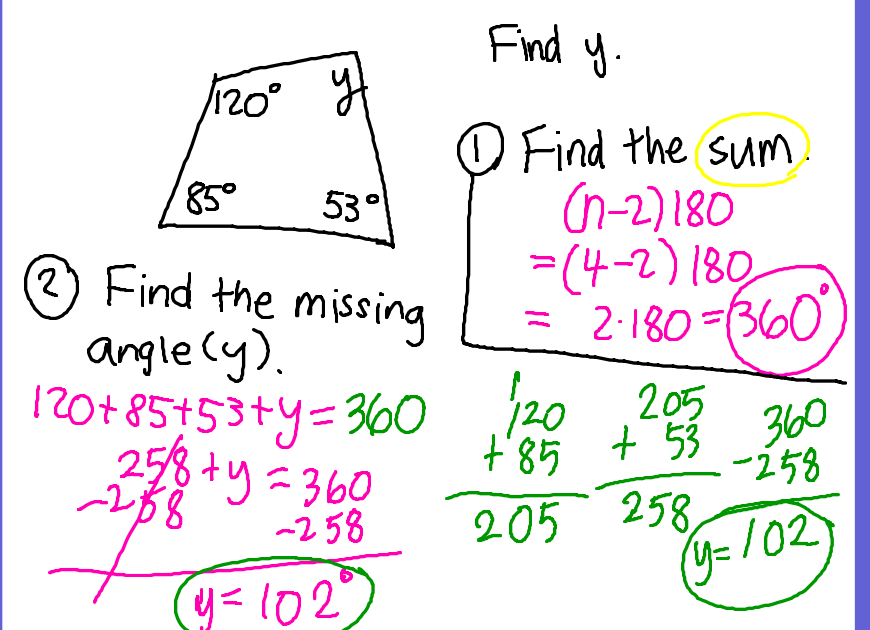 Find y.
120° y
85° 53°
① Find the sum.
(n-2)180
=(4-2)180
= 2·180=360°
② Find the missing
angle(y).
120+85+53+y=360
258+y=360
-258 -258
y=102°
1
120
+85
205
205
+ 53
258
360
-258
y=102